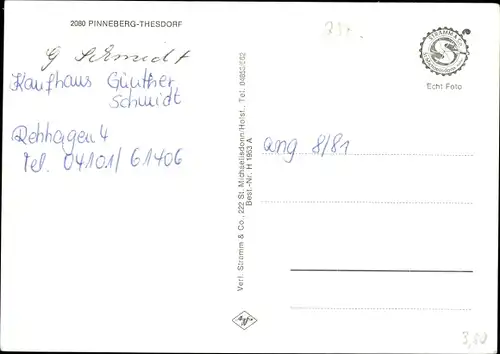 2080 PINNEBERG-THESDORF
G Schmidt
Kaufhaus Günther
Schmidt
Rehhagen 4
Tel. 04101/61406
Verl. Stramm & Co., 222 St. Michaelisdonn/Holst., Tel. 04853/662
Best.-Nr. H 1953 A
STRAMM & CO
St. Michaelisdonn
S
Echt Foto
ang 8/81
Agfa
3,00